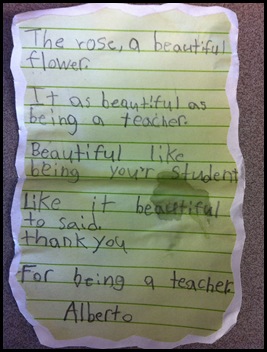 The rose, a beautiful
flower.
It as beautiful as
being a teacher.
Beautiful like
being you'r student
Like it beautiful
to said.
thank you
For being a teacher.
Alberto